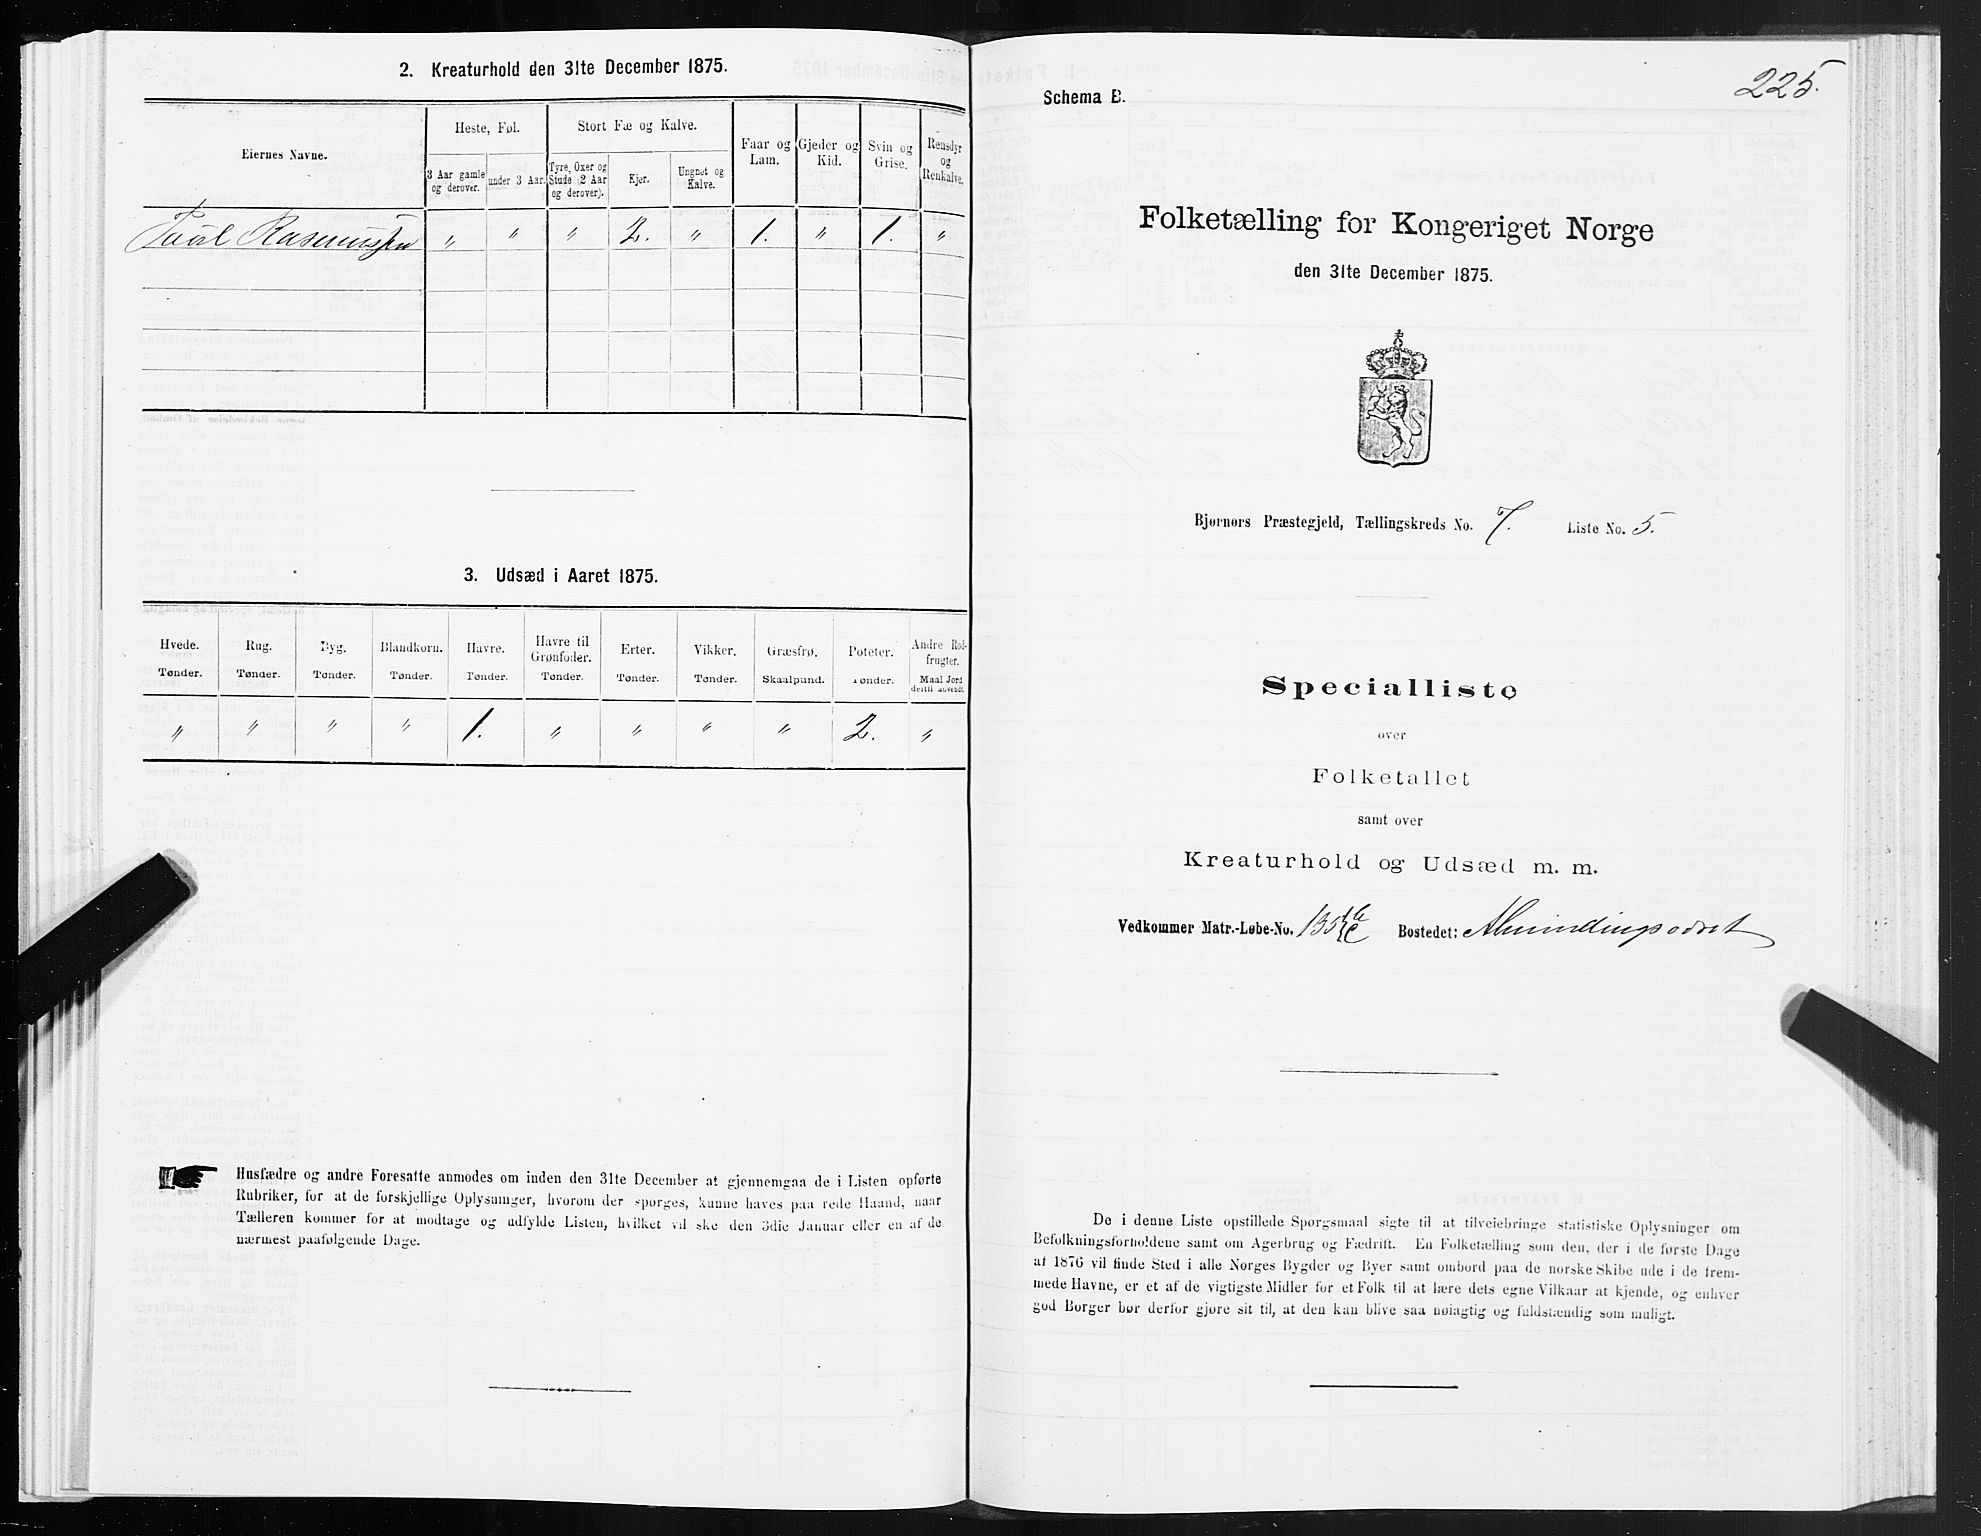 2. Kreaturhold den 31te December 1875.
Eiernes Navne.
Heste, Føl.
Stort Fæ og Kalve.
Faar og Lam.
Gjeder og Kid.
Svin og Grise.
Rensdyr og Renkalve.
3 Aar gamle og derover.
under 3 Aar.
Tyre, Oxer og Stude (2 Aar og derover).
Kjør.
Ungnøt og Kalve.
Paul Rasmussen " " " 2. " 1. " 1. "
3. Udsæd i Aaret 1875.
Hvede. Rug. Byg. Blandkorn. Havre. Havre til Grønfoder. Erter. Vikker. Græsfrø. Poteter. Andre Rodfrugter.
Tønder. Tønder. Tønder. Tønder. Tønder. Tønder. Tønder. Tønder. Skaalpund. Tønder. Maal Jord dertil anvendt.
" " " " 1. " " " " 2. "
Husfædre og andre Foresatte anmodes om inden den 31te December at gjennemgaa de i Listen opførte
Rubriker, for at de forskjellige Oplysninger, hvorom der spørges, kunne haves paa rede Haand, naar
Tælleren kommer for at modtage og udfylde Listen, hvilket vil ske den 3die Januar eller en af de
nærmest paafølgende Dage.
225.
Schema B.
Folketælling for Kongeriget Norge
den 31te December 1875.
Bjørnørs Præstegjeld, Tællingskreds No. 7. Liste No. 5.
Specialliste
over
Folketallet
samt over
Kreaturhold og Udsæd m. m.
Vedkommer Matr.-Løbe-No. 135 b c Bostedet:
De i denne Liste opstillede Spørgsmaal sigte til at tilveiebringe statistiske Oplysninger om
Befolkningsforholdene samt om Agerbrug og Fædrift. En Folketælling som den, der i de første Dage
af 1876 vil finde Sted i alle Norges Bygder og Byer samt ombord paa de norske Skibe ude i de frem-
mede Havne, er et af de vigtigste Midler for et Folk til at lære dets egne Vilkaar at kjende, og enhver
god Borger bør derfor gjøre sit til, at den kan blive saa nøiagtig og fuldstændig som muligt.